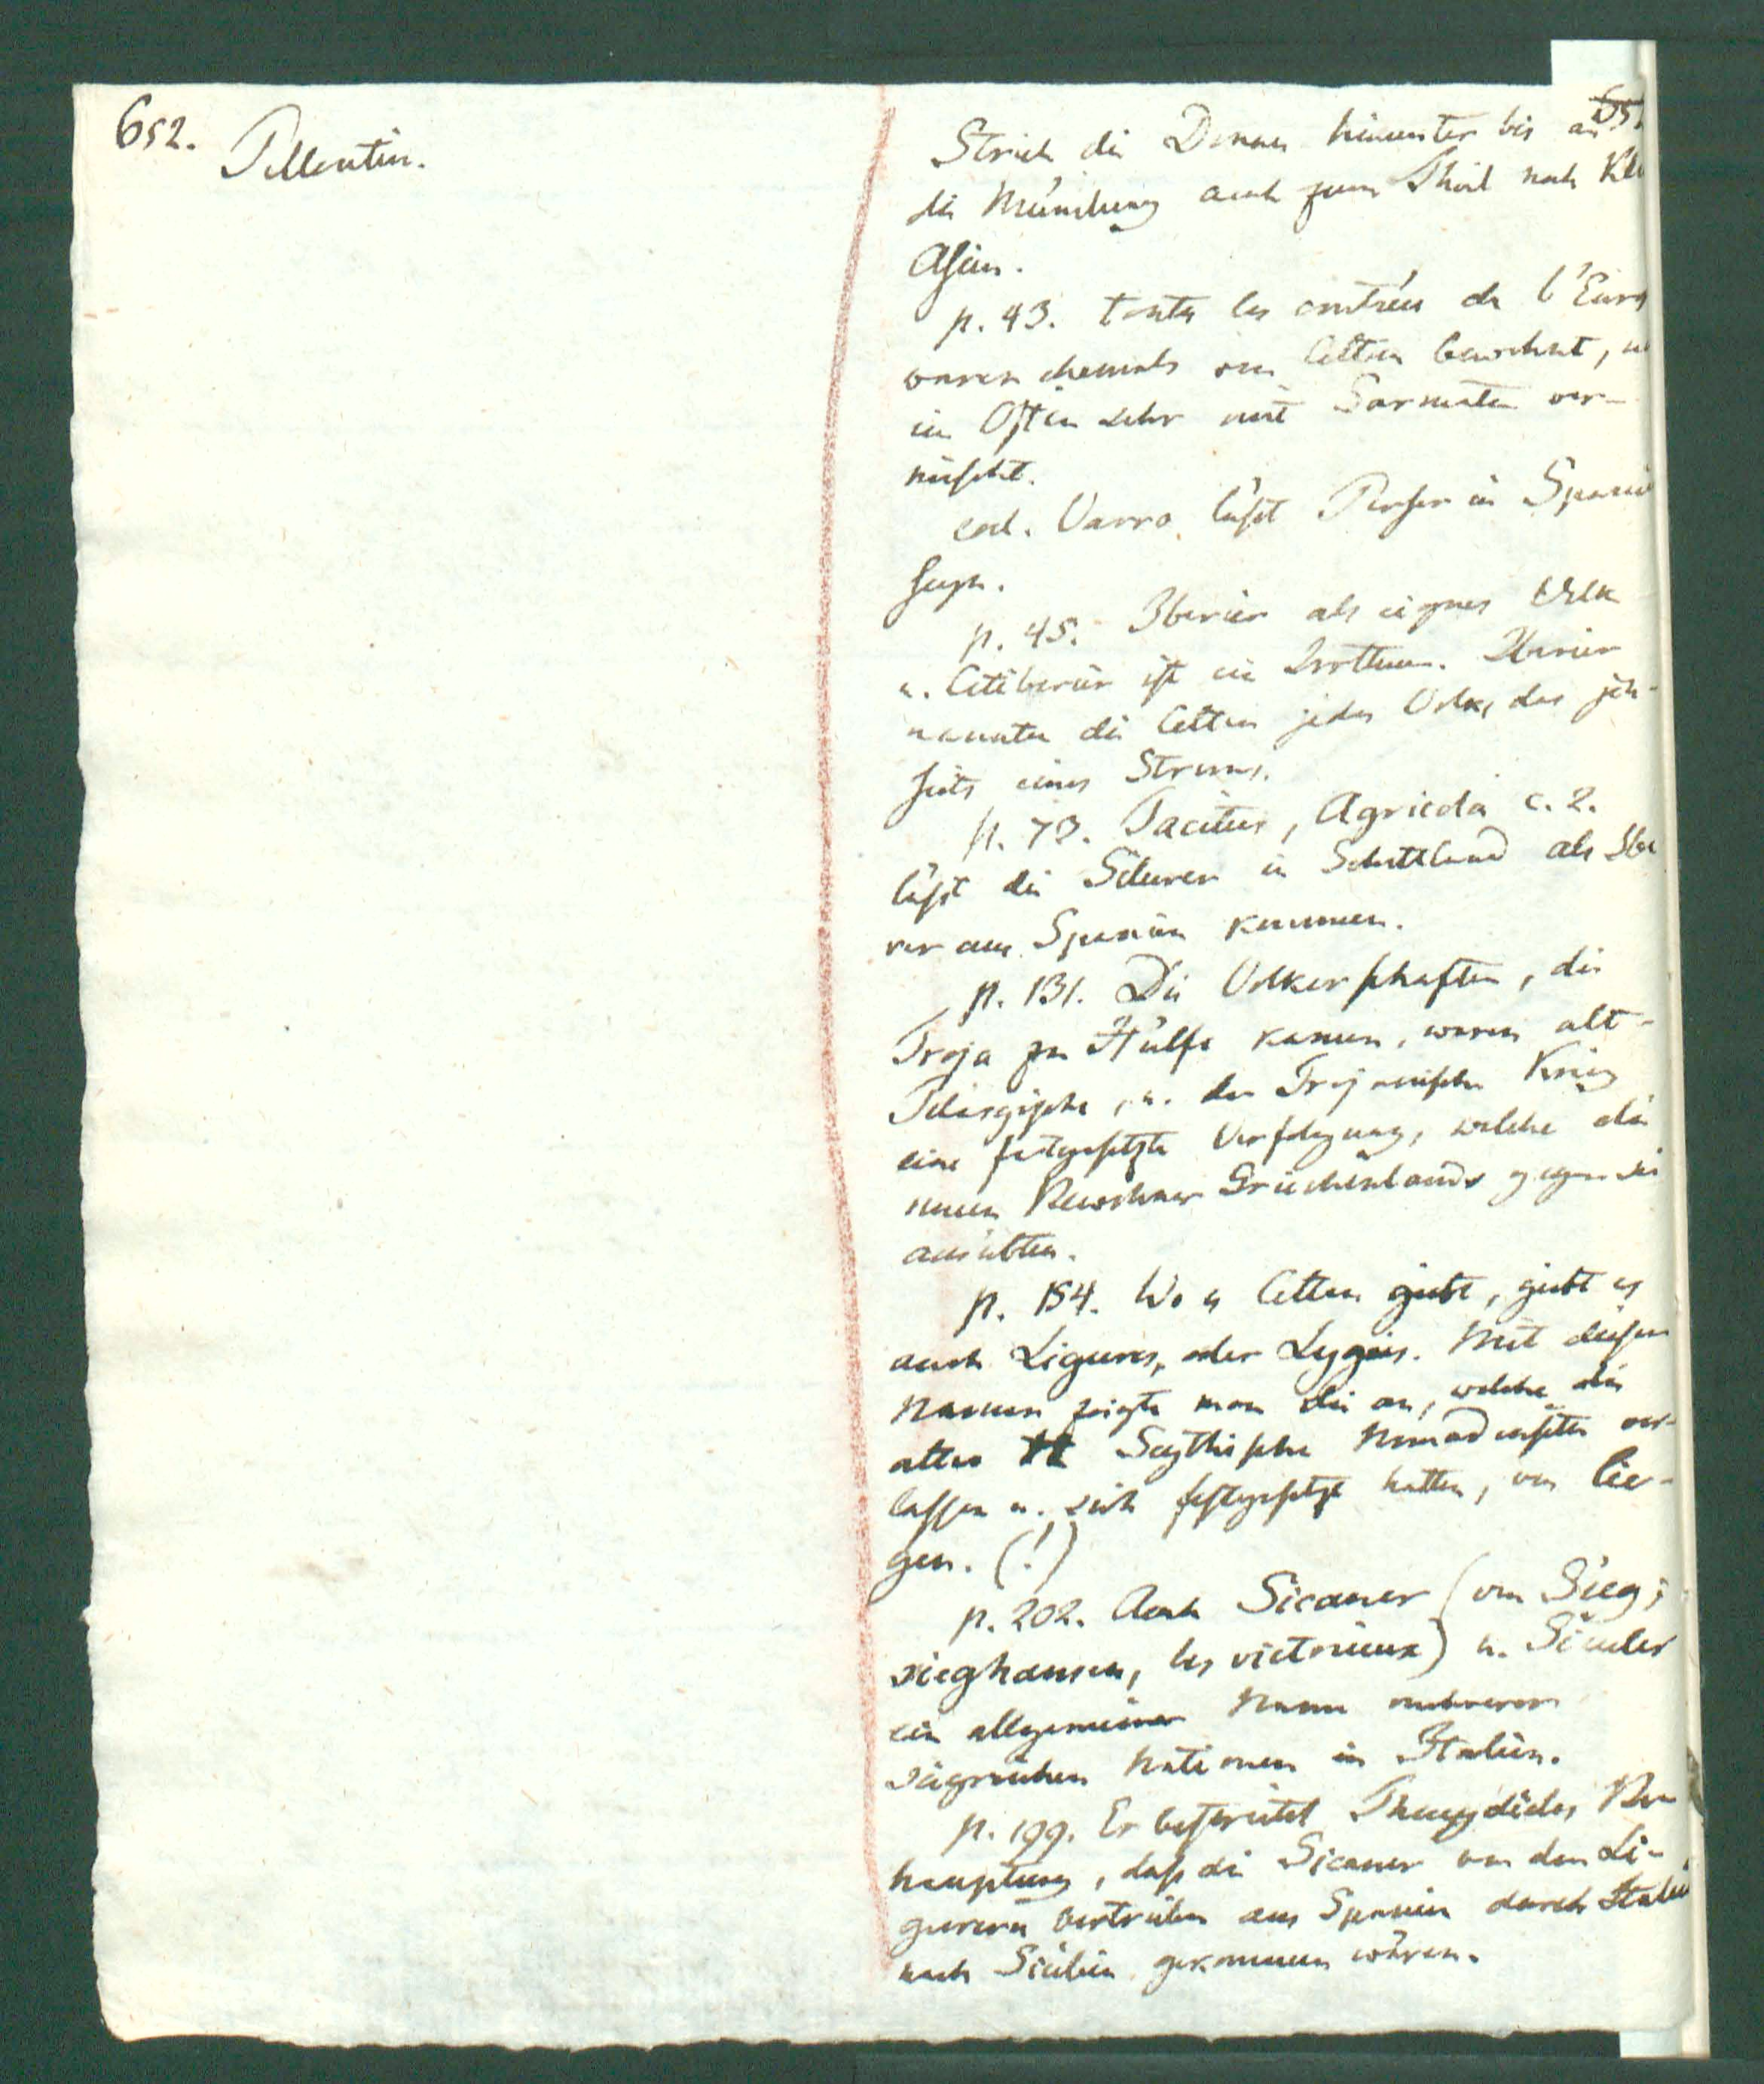 652.
Pelloutier.
Strich die Donau hinunter bis an
die Mündung auch zum Theil nach Kl
Asien.
p. 43. toutes les contrées de l'Euro
waren ehemals von Celten bewohnt, u
im Osten sehr mit Sarmaten ver-
mischt.
eod. Varro läßt Perser in Spanie
seyn.
p. 45. Iberier als eignes Volk
u. Celtiberier ist ein Irrthum. Iberier
nannten die Celten jedes Volk, das jen-
seits eines Stroms.
p. 73. Tacitus, Agricola c. 2.
läßt die Silurer in Schottland als Ibe
rer aus Spanien kommen.
p. 131. Die Völkerschaften, die
Troja zu Hülfe kamen, waren alt-
Pelasgische, u. der Trojanische Krieg
eine fortgesetzte Verfolgung, welche die
neuen Bewohner Griechenlands gegen sie
ausübten.
p. 154. Wo es Celten giebt, giebt es
auch Ligures, oder Lygies. Mit diesem
Namen zeigte man die an, welche die
alten Scythischen Nomadensitten ver-
lassen u. sich festgesetzt hatten, von lie-
gen. (!)
p. 202. Auch Sicaner (von Sieg,
sieghansen, les victrieux) u. Siculer
ein allgemeiner Name mehrerer
siegreichen Nationen in Italien.
p. 199. Er bestreitet Thucydides Be-
hauptung, daß die Sicaner von den Li-
gurern vertrieben aus Spanien durch Italien
nach Sicilien gekommen wären.